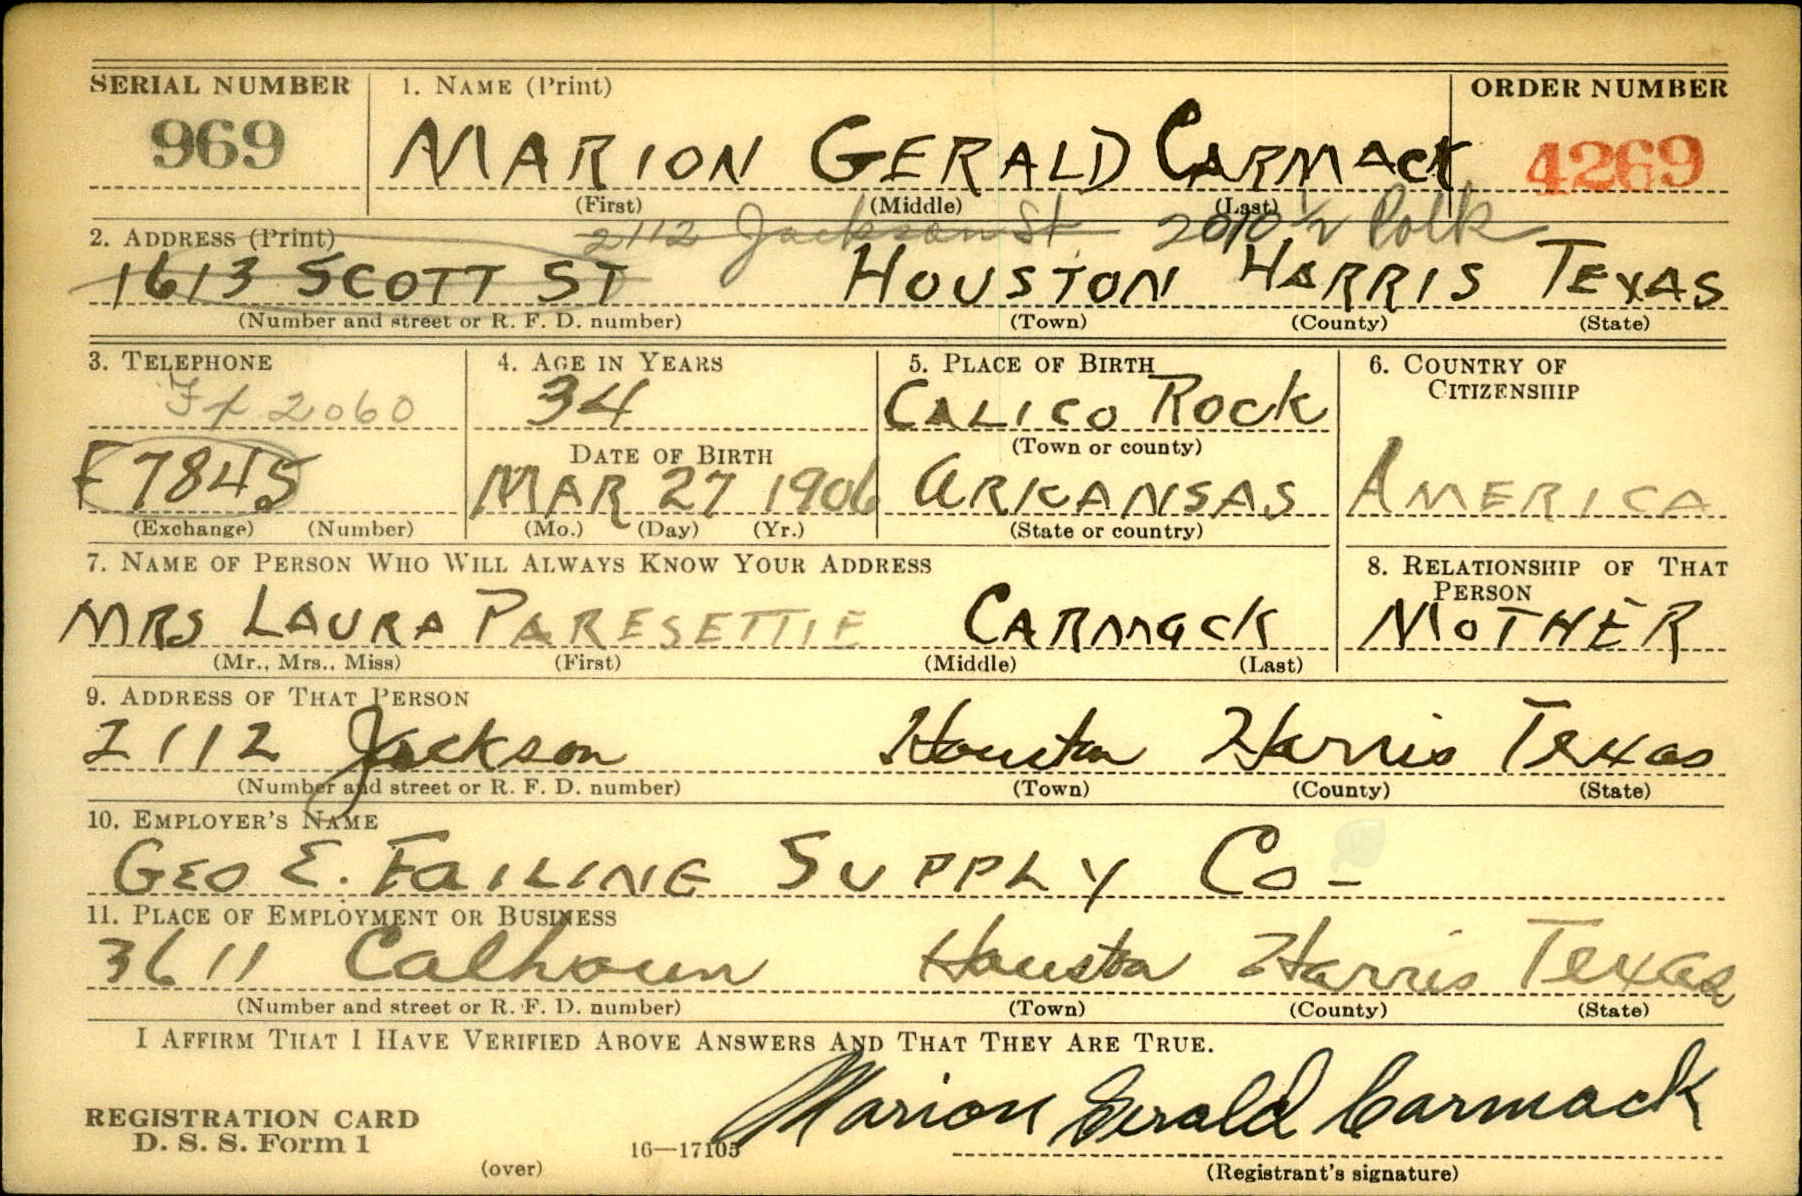 SERIAL NUMBER 1. NAME (Print) ORDER NUMBER
969 MARION GERALD CARMACK 4269
(First) (Middle) (Last)
2112 Jackson St 2010 1/2 Polk
2. ADDRESS (Print)
1613 SCOTT ST HOUSTON HARRIS TEXAS
(Number and street or R. F. D. number) (Town) (County) (State)
3. TELEPHONE 4. AGE IN YEARS 5. PLACE OF BIRTH 6. COUNTRY OF CITIZENSHIP
2060 34 CALICO ROCK
(Town or county)
DATE OF BIRTH
F 7845 MAR 27 1906 ARKANSAS AMERICA
(Exchange) (Number) (Mo.) (Day) (Yr.) (State or country)
7. NAME OF PERSON WHO WILL ALWAYS KNOW YOUR ADDRESS 8. RELATIONSHIP OF THAT PERSON
MRS LAURA PARESETTIE CARMACK MOTHER
(Mr., Mrs., Miss) (First) (Middle) (Last)
9. ADDRESS OF THAT PERSON
2112 Jackson Houston Harris Texas
(Number and street or R. F. D. number) (Town) (County) (State)
10. EMPLOYER'S NAME
GEO E. FAILING SUPPLY CO-
11. PLACE OF EMPLOYMENT OR BUSINESS
3611 Calhoun Houston Harris Texas
(Number and street or R. F. D. number) (Town) (County) (State)
I AFFIRM THAT I HAVE VERIFIED ABOVE ANSWERS AND THAT THEY ARE TRUE.
Marion Gerald Carmack
REGISTRATION CARD
D. S. S. Form 1 16—17105
(over) (Registrant's signature)